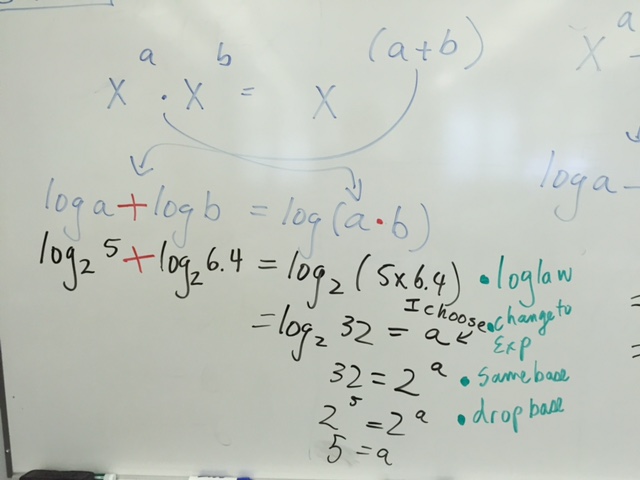 x^a · x^b = x^(a+b)
x^a -
log a + log b = log(a · b)
log a -
log₂ 5 + log₂ 6.4 = log₂ (5 x 6.4) • log law
= log₂ 32 = a I choose • change to Exp
32 = 2^a • same base
2^5 = 2^a • drop base
5 = a
=
=